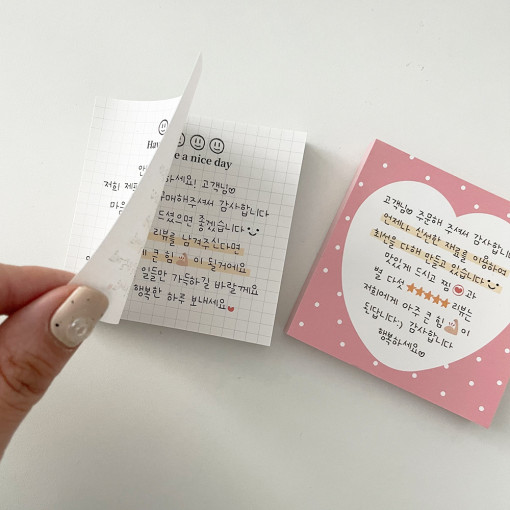 Hav
e a nice day
안
하세요! 고객님
저희 제
구매해주셔서 감사합니다
마음
드셨으면 좋겠습니다
리뷰를 남겨주신다면
큰 힘 이 될거에요
일들만 가득하길 바랄게요
행복한 하루 보내세요
고객님 주문해 주셔서 감사합니다
언제나 신선한 재료를 이용하여
최선을 다해 만들고 있습니다
맛있게 드시고 찜 과
별 다섯 ★★★★★ 리뷰는
저희에게 아주 큰 힘 이
된답니다:) 감사합니다
행복하세요